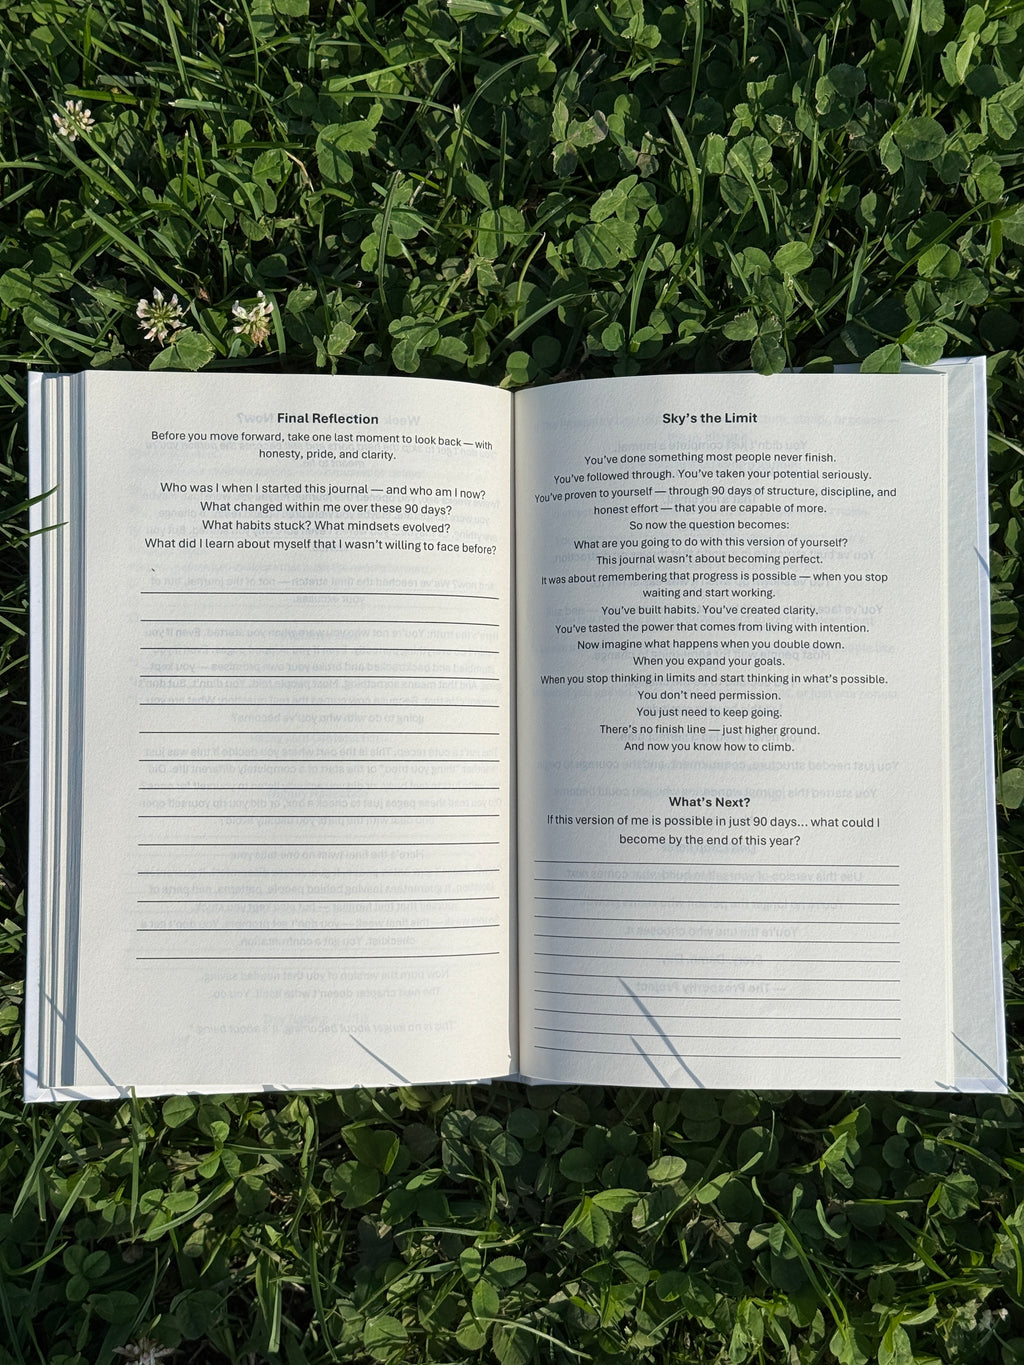 Final Reflection
Before you move forward, take one last moment to look back — with
honesty, pride, and clarity.
Who was I when I started this journal — and who am I now?
What changed within me over these 90 days?
What habits stuck? What mindsets evolved?
What did I learn about myself that I wasn't willing to face before?
Sky's the Limit
You've done something most people never finish.
You've followed through. You've taken your potential seriously.
You've proven to yourself — through 90 days of structure, discipline, and
honest effort — that you are capable of more.
So now the question becomes:
What are you going to do with this version of yourself?
This journal wasn't about becoming perfect.
It was about remembering that progress is possible — when you stop
waiting and start working.
You've built habits. You've created clarity.
You've tasted the power that comes from living with intention.
Now imagine what happens when you double down.
When you expand your goals.
When you stop thinking in limits and start thinking in what's possible.
You don't need permission.
You just need to keep going.
There's no finish line — just higher ground.
And now you know how to climb.
What's Next?
If this version of me is possible in just 90 days... what could I
become by the end of this year?